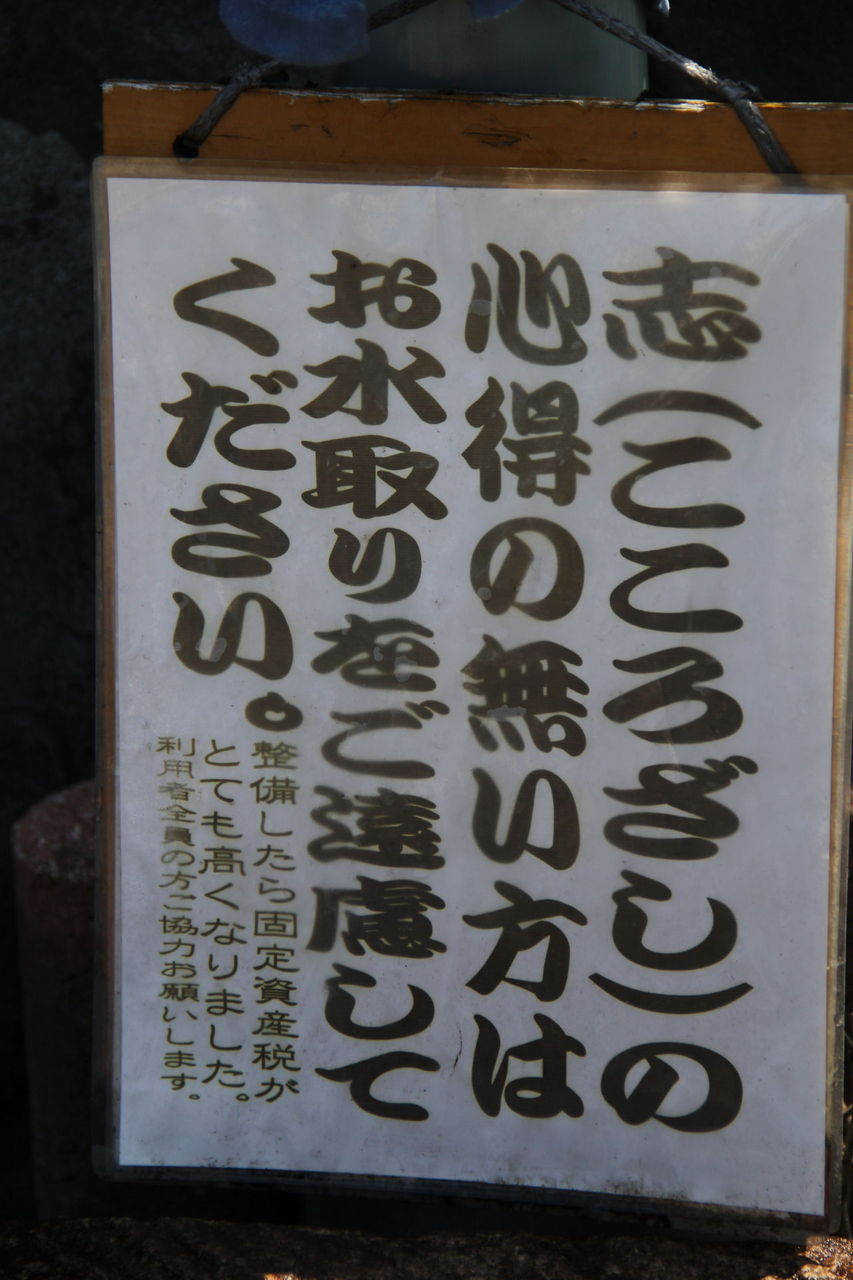 志(こころざし)の
心得の無い方は
お水取りをご遠慮して
ください。
整備したら固定資産税が
とても高くなりました。
利用者全員の方ご協力お願いします。